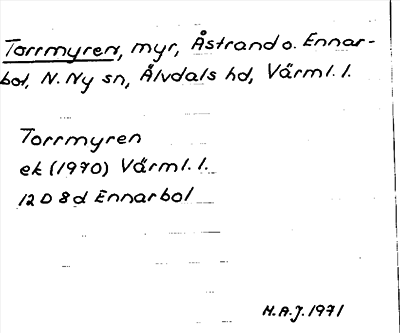 Torrmyren, myr, Åstrand o. Ennar-
bol, N. Ny sn, Älvdals hd, Värml. l.
Torrmyren
ek (1970) Värml. l.
12 D 8 d Ennarbol
N.A.J. 1971